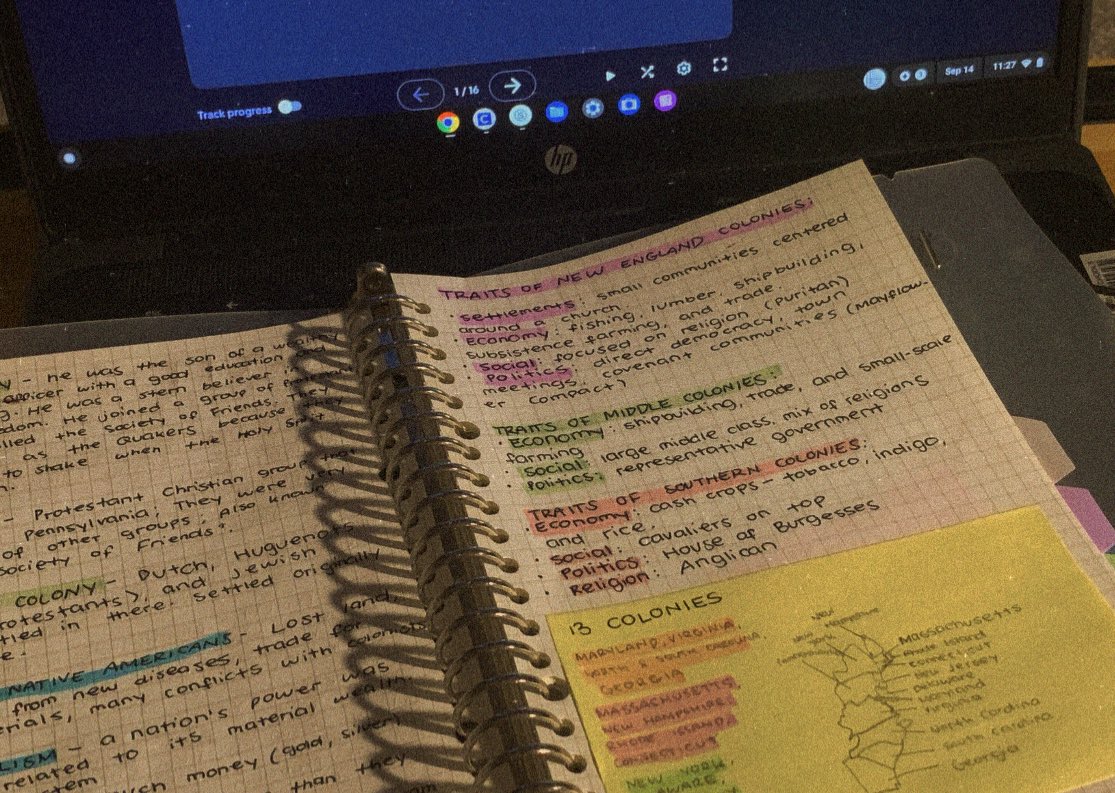 Track progress
1/16
Sep 14
11:27
hp
- he was the son of a
officer with a good education
. He was a stern believer
. He joined a group of
the Society of Friends.
as the Quakers because
to shake when the Holy
- Protestant Christian group
Pennsylvania. They were
of other groups. Also known
Society of Friends".
COLONY - Dutch, Huguenots
), and Jewish
in there. Settled originally
NATIVE AMERICANS - Lost land,
from new diseases, trade for
many conflicts with colonists
- a nation's power was
related to its material wealth
money (gold, silver)
than they
TRAITS OF NEW ENGLAND COLONIES:
· Settlements: small communities centered
around a church.
· Economy: fishing, lumber, shipbuilding,
subsistence farming, and trade.
· Social: focused on religion (puritan)
· Politics: direct democracy, town
meetings, covenant communities (Mayflow-
er Compact)
TRAITS OF MIDDLE COLONIES:
· Economy: shipbuilding, trade, and small-scale
farming
· Social: large middle class, mix of religions
· Politics: representative government
TRAITS OF SOUTHERN COLONIES:
· Economy: cash crops - tobacco, indigo,
and rice.
· Social: Cavaliers on top
· Politics: House of Burgesses
· Religion: Anglican
13 COLONIES
MARYLAND, VIRGINIA
NORTH & SOUTH CAROLINA,
GEORGIA
MASSACHUSETTS
NEW HAMPSHIRE,
RHODE ISLAND,
CONNETICUT
NEW YORK,
New
Hampshire
New
York
Massachusetts
Rhode Island
Connecticut
New Jersey
Delaware
Maryland
Virginia
North Carolina
South Carolina
Georgia